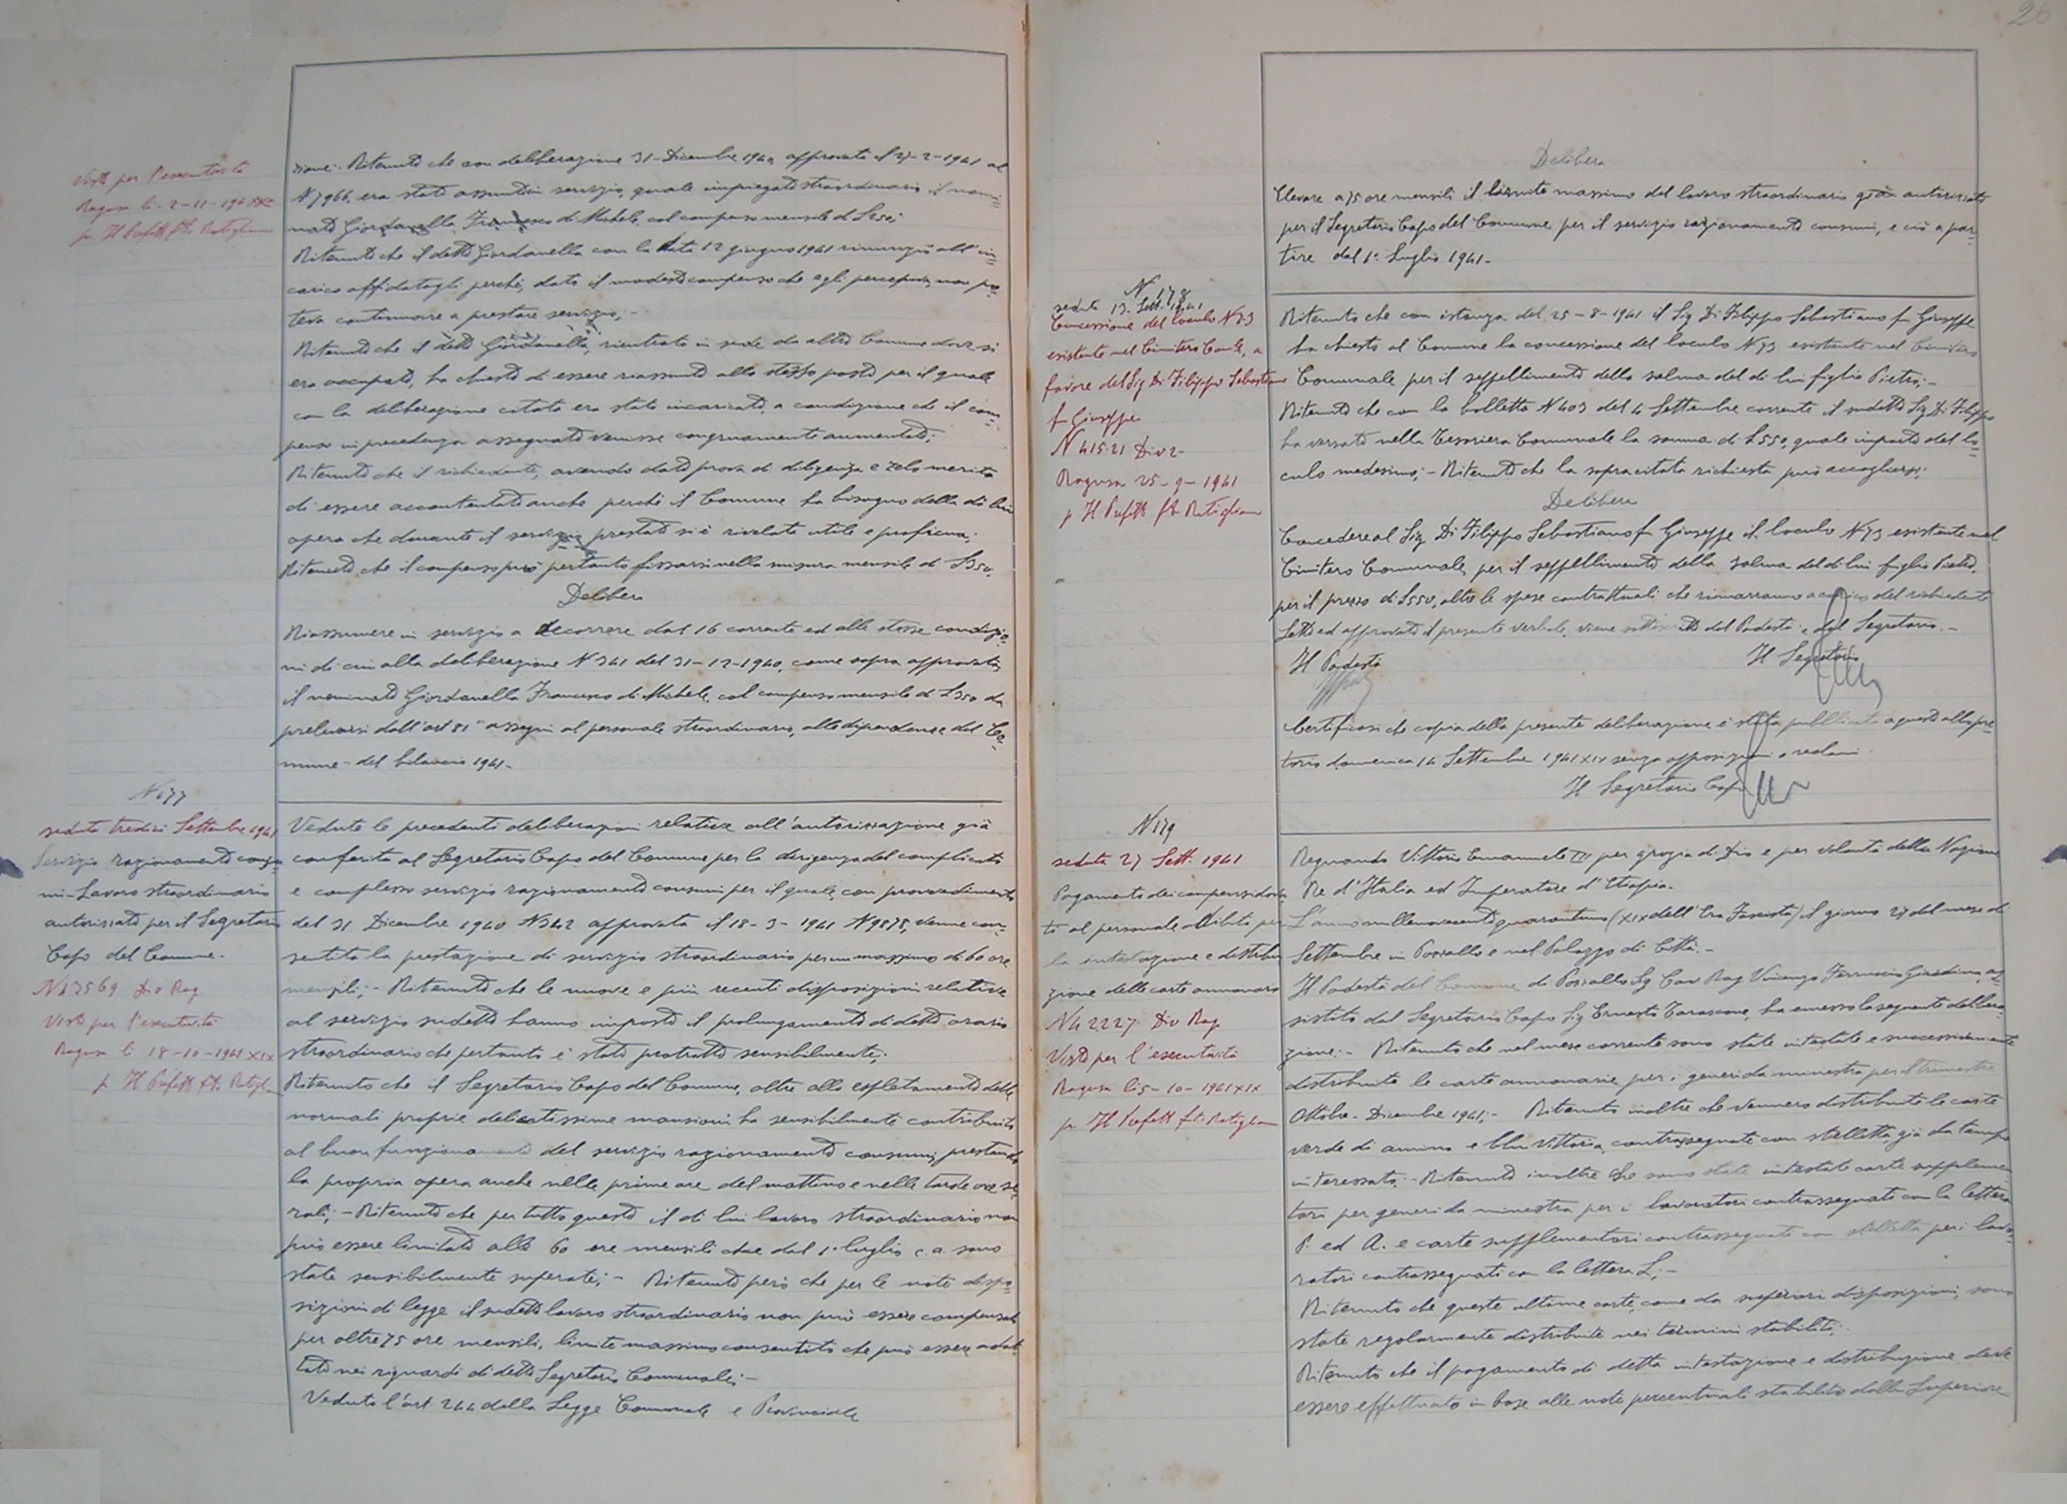 Visto per l'esecutorietà
Ragusa li - 2-11-1941 XX
p. Il Prefetto fto Rutigliano
zione:- Ritenuto che con deliberazione 31-Dicembre 1940 approvata il 27-2-1941 al
N 7966, era stato assunto in servizio, quale impiegato straordinario il nomi=
nato Giordanella Francesco di Michele, col compenso mensile di L 250;
Ritenuto che il detto Giordanella con la data 12 giugno 1941 rinunziò all'in=
carico affidatogli perché, dato il modesto compenso che egli percepiva, non po=
teva continuare a prestare servizio;-
Ritenuto che il detto Giordanella, rientrato in sede da altro Comune dove si
era occupato, ha chiesto di essere riassunto allo stesso posto per il quale
con la deliberazione citata era stato incaricato, a condizione che il com=
penso in precedenza assegnato venisse congruamente aumentato;
Ritenuto che il richiedente, avendo dato prova di diligenza e zelo merita
di essere accontentato anche perché il Comune ha bisogno della di lui
opera che durante il servizio prestato si è rivelata utile e proficua;
Ritenuto che il compenso può pertanto fissarsi nella misura mensile di L 350.
Delibera
Riassumere in servizio a decorrere dal 16 corrente ed alle stesse condizio=
ni di cui alla deliberazione N 341 del 31-12-1940, come sopra approvata,
il nominato Giordanella Francesco di Michele, col compenso mensile di L 350 da
prelevarsi dall'art 81 "assegni al personale straordinario, alle dipendenze del Co=
mune" del bilancio 1941.-
N 177
seduta tredici Settembre 1941
Servizio razionamento consu
mi - Lavoro straordinario
autorizzato per il Segretario
Capo del Comune.-
N 43569 Div Rag
Visto per l'esecutorietà
Ragusa li 18-10-1941 XIX
p. Il Prefetto fto Rutigliano
Vedute le precedenti deliberazioni relative all'autorizzazione già
conferita al Segretario Capo del Comune per la dirigenza del complicato
e complesso servizio razionamento consumi per il quale, con provvedimento
del 31 Dicembre 1940 N 342 approvata il 18-3-1941 N 9878, venne con=
sentita la prestazione di servizio straordinario per un massimo di 60 ore
mensili;- Ritenuto che le nuove e più recenti disposizioni relative
al servizio sudetto hanno imposto il prolungamento di detto orario
straordinario che pertanto è stato protratto sensibilmente;
Ritenuto che il Segretario Capo del Comune, oltre allo espletamento delle
normali proprie delicatissime mansioni ha sensibilmente contribuito
al buon funzionamento del servizio razionamento consumi, prestando
la propria opera anche nelle prime ore del mattino e nelle tarde ore se=
rali;- Ritenuto che per tutto questo il di lui lavoro straordinario non
può essere limitato alle 60 ore mensili che dal 1° luglio c.a. sono
state sensibilmente superate;- Ritenuto però che per le note dispo=
sizioni di legge il sudetto lavoro straordinario non può essere compensato
per oltre 75 ore mensili, limite massimo consentito che può essere adot=
tato nei riguardi di detto Segretario Comunale;-
Veduto l'art 244 della Legge Comunale e Provinciale
26
Delibera
Elevare a 75 ore mensili il limite massimo del lavoro straordinario già autorizzato
per il Segretario Capo del Comune per il servizio razionamento consumi, e ciò a par=
tire dal 1° Luglio 1941.-
N 178
seduta 13. Sett. 1941
Concessione del loculo N 73
esistente nel Cimitero Com/le, a
favore del Sig Di Filippo Sebastiano
fu Giuseppe
N 41521 Div 2-
Ragusa 25-9-1941
p Il Prefetto fto Rutigliano
Ritenuto che con istanza del 25-8-1941 il Sig Di Filippo Sebastiano fu Giuseppe
ha chiesto al Comune la concessione del loculo N 73 esistente nel Cimitero
Comunale per il seppellimento della salma del di lui figlio Pietro;-
Ritenuto che con la bolletta N 403 del 4 Settembre corrente il sudetto Sig Di Filippo
ha versato nella Tesoriera Comunale la somma di L 550, quale importo del lo=
culo medesimo;- Ritenuto che la sopracitata richiesta può accogliersi;
Delibera
Concedere al Sig Di Filippo Sebastiano fu Giuseppe il loculo N 73 esistente nel
Cimitero Comunale, per il seppellimento della salma del di lui figlio Pietro,
per il prezzo di L 550, oltre le spese contrattuali che rimarranno a carico del richiedente
Letto ed approvato il presente verbale, viene sottoscritto dal Podestà e dal Segretario.-
Il Podestà
Il Segretario
Certificasi che copia della presente deliberazione è stata pubblicata a questo albo pre=
torio domenica 14 Settembre 1941 XIX senza opposizioni o reclami.
Il Segretario Capo
N 179
seduta 27 Sett. 1941
Pagamento dei compensi dovu
ti al personale adibito per
la intestazione e distribu
zione delle carte annonarie
N 42227 Div Rag.
Visto per l'esecutorietà
Ragusa li 5-10-1941 XIX
p. Il Prefetto fto Rutigliano
Regnando Vittorio Emanuele III per grazia di Dio e per volontà della Nazione
Re d'Italia ed Imperatore d'Etiopia.
L'anno millenovecentoquarantuno (XIX dell'Era Fascista) il giorno 27 del mese di
Settembre in Pozzallo e nel Palazzo di Città.-
Il Podestà del Comune di Pozzallo Sig Cav Rag Vincenzo Ferruccio Giardina, as=
sistito dal Segretario Capo Sig Ernesto Tarascone, ha emesso la seguente delibera=
zione:- Ritenuto che nel mese corrente sono state intestate e successivamente
distribuite le carte annonarie per i generi da minestra per il trimestre
Ottobre-Dicembre 1941;- Ritenuto inoltre che vennero distribuite le carte
verde di amino e blu Vittoria, contrassegnate con stelletta, già da tempo
interessato.- Ritenuto inoltre che sono state intestate carte supplemen=
tari per generi da minestra per i lavoratori contrassegnate con la lettera
P. ed A. e carte supplementari contrassegnate con stelletta per i lavo=
ratori contrassegnati con la lettera L;-
Ritenuto che queste ultime carte, come da superiori disposizioni, sono
state regolarmente distribuite nei termini stabiliti;
Ritenuto che il pagamento di detta intestazione e distribuzione deve
essere effettuato in base alle note percentuali stabilite dalla Superiore